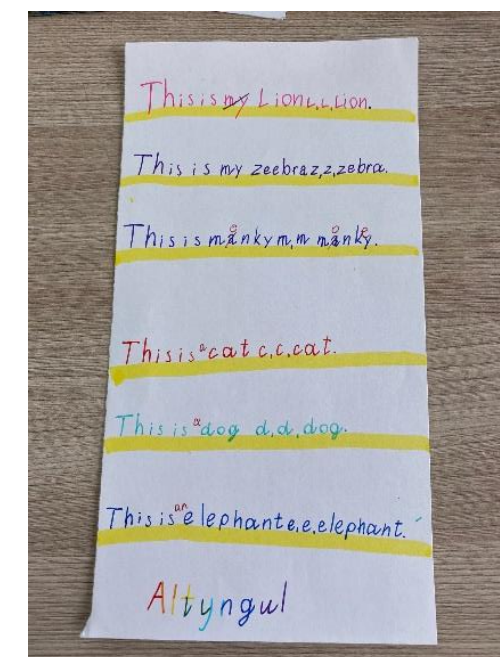 This is my Lion L, L, Lion.
This is my zeebra z, z, zebra.
This is manky m, m manky.
This is a cat c, c, cat.
This is a dog d, d, dog.
This is an elephant e, e, elephant.
Altyngul